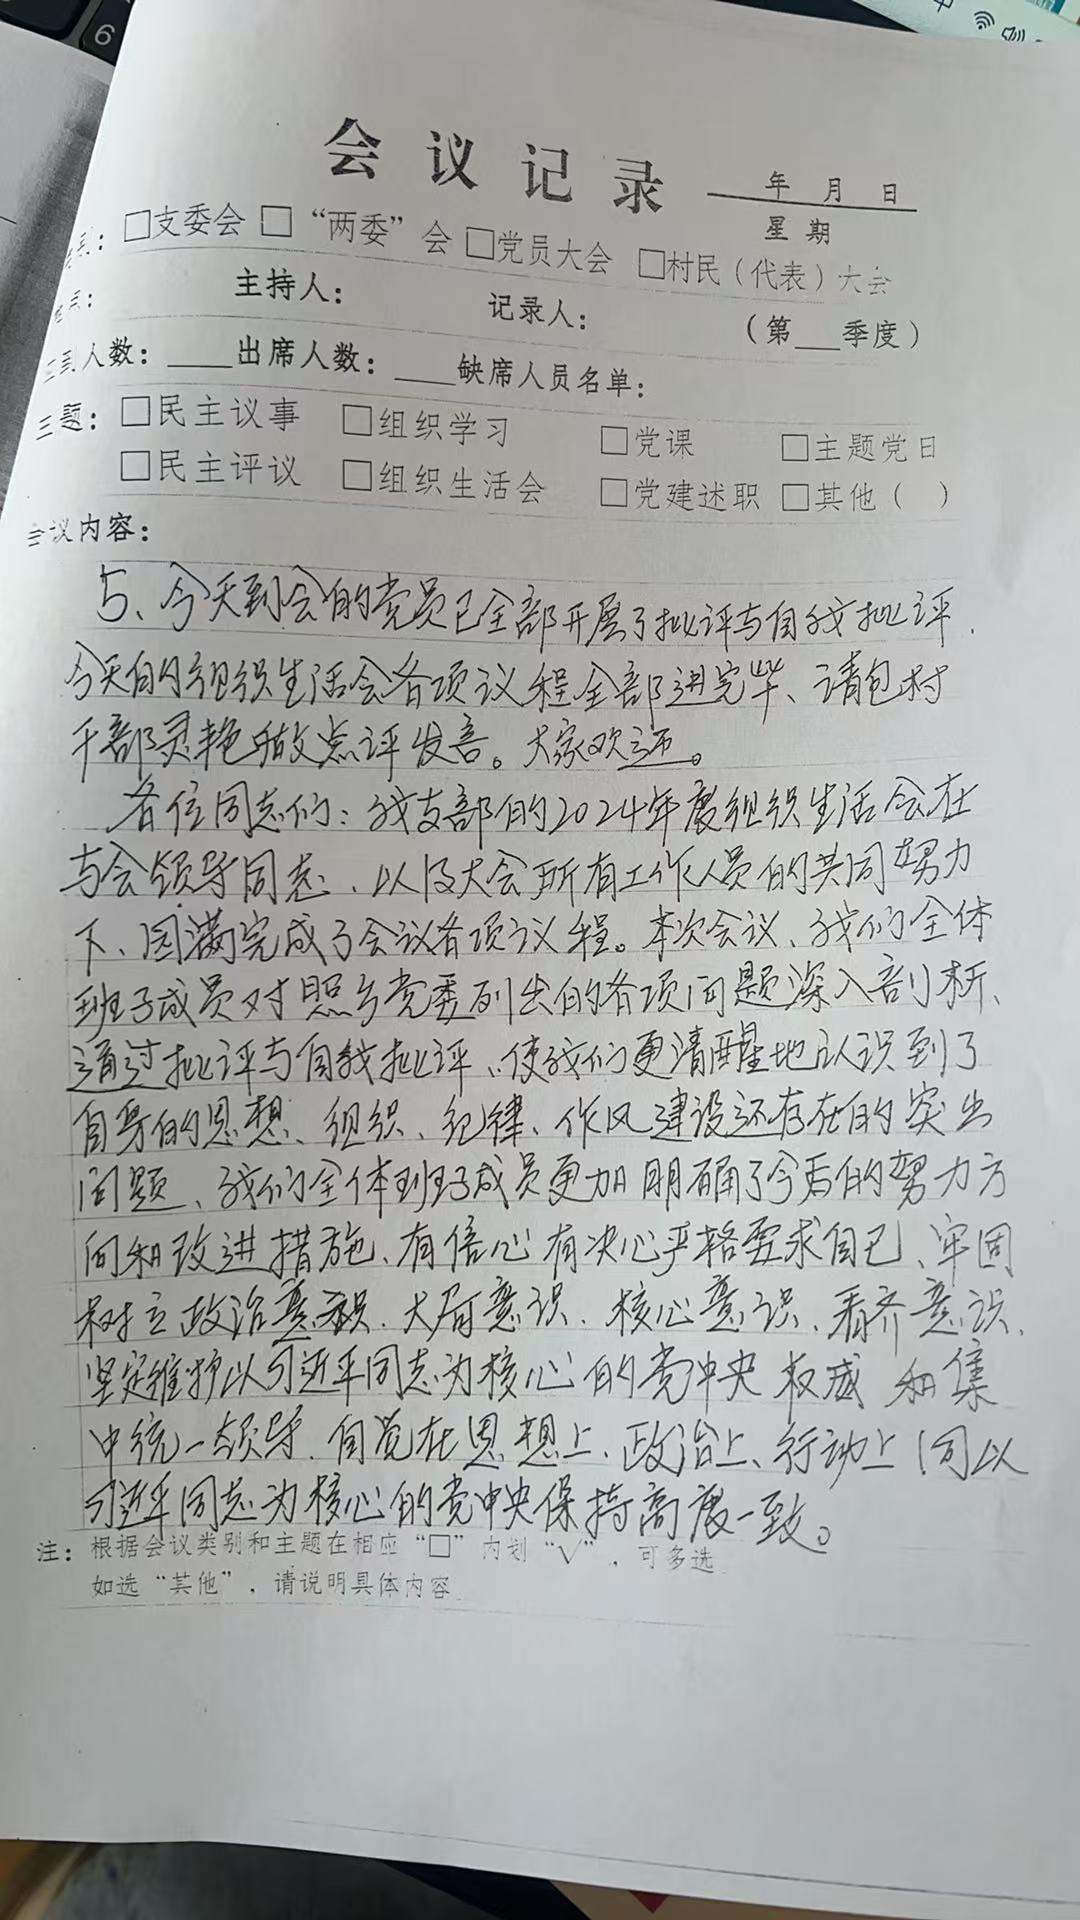 会议记录 年 月 日
星期
□支委会 □“两委”会 □党员大会 □村民（代表）大会
主持人： 记录人： （第 季度）
到人数： 出席人数： 缺席人员名单：
题： □民主议事 □组织学习 □党课 □主题党日
□民主评议 □组织生活会 □党建述职 □其他（ ）
议内容：
5、今天到会的党员已全部开展了批评与自我批评，
今天的组织生活会各项议程全部进完毕、请包村
干部灵艳做点评发言。大家欢迎。
各位同志们：我支部的2024年度组织生活会在
与会领导同志、以及大会所有工作人员的共同努力
下、圆满完成了会议各项议程。本次会议、我们全体
班子成员对照乡党委列出的各项问题深入剖析、
通过批评与自我批评、使我们更清醒地认识到了
自身的思想、组织、纪律、作风建设还存在的突出
问题、我们全体班子成员更加明确了今后的努力方
向和改进措施、有信心有决心严格要求自己、牢固
树立政治意识、大局意识、核心意识、看齐意识、
坚定维护以习近平同志为核心的党中央权威和集
中统一领导、自觉在思想上、政治上、行动上同以
习近平同志为核心的党中央保持高度一致。
注：根据会议类别和主题在相应“□”内划“√”，可多选
如选“其他”，请说明具体内容